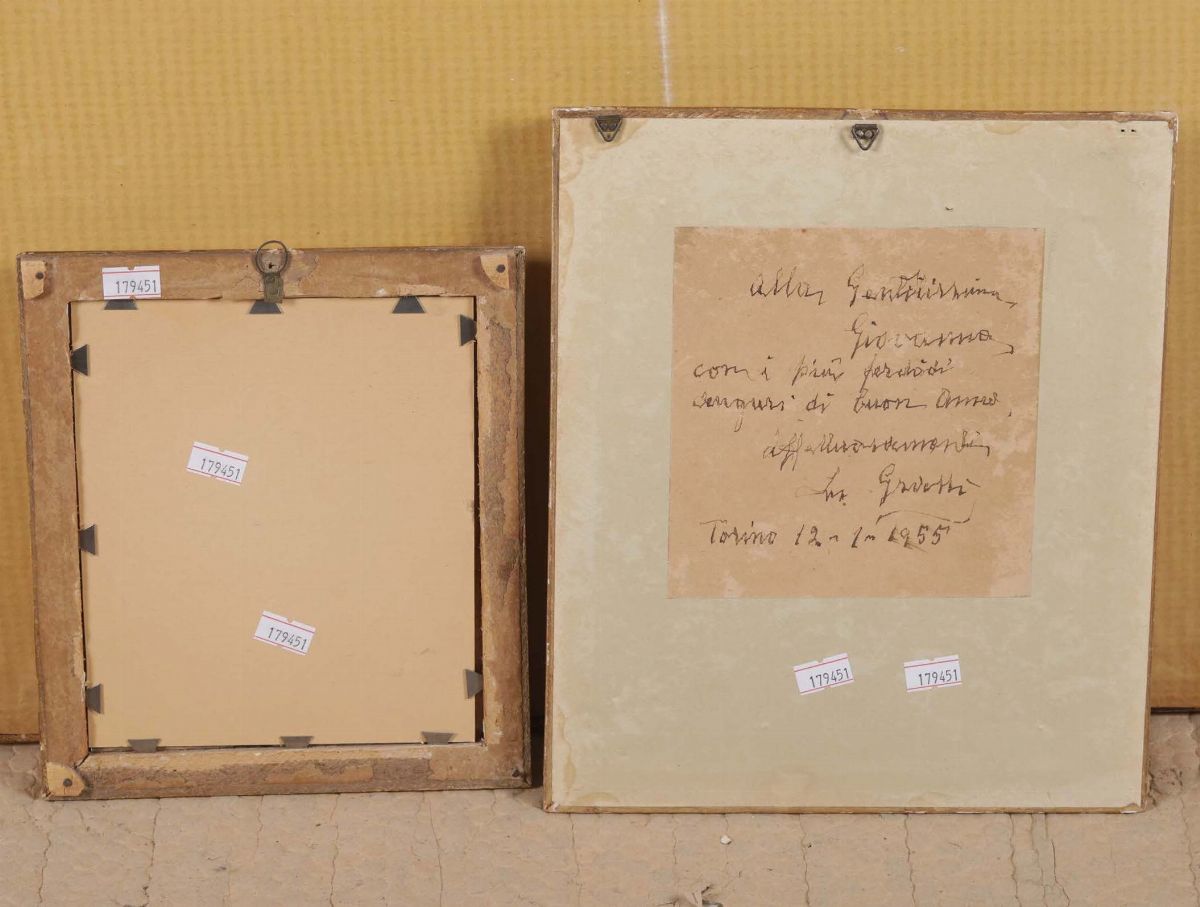 179451
179451
179451
alla Gentilissima
Giovanna
con i più fervidi
auguri di buon anno
affettuosamente
Torino 12-1-1955
179451
179451